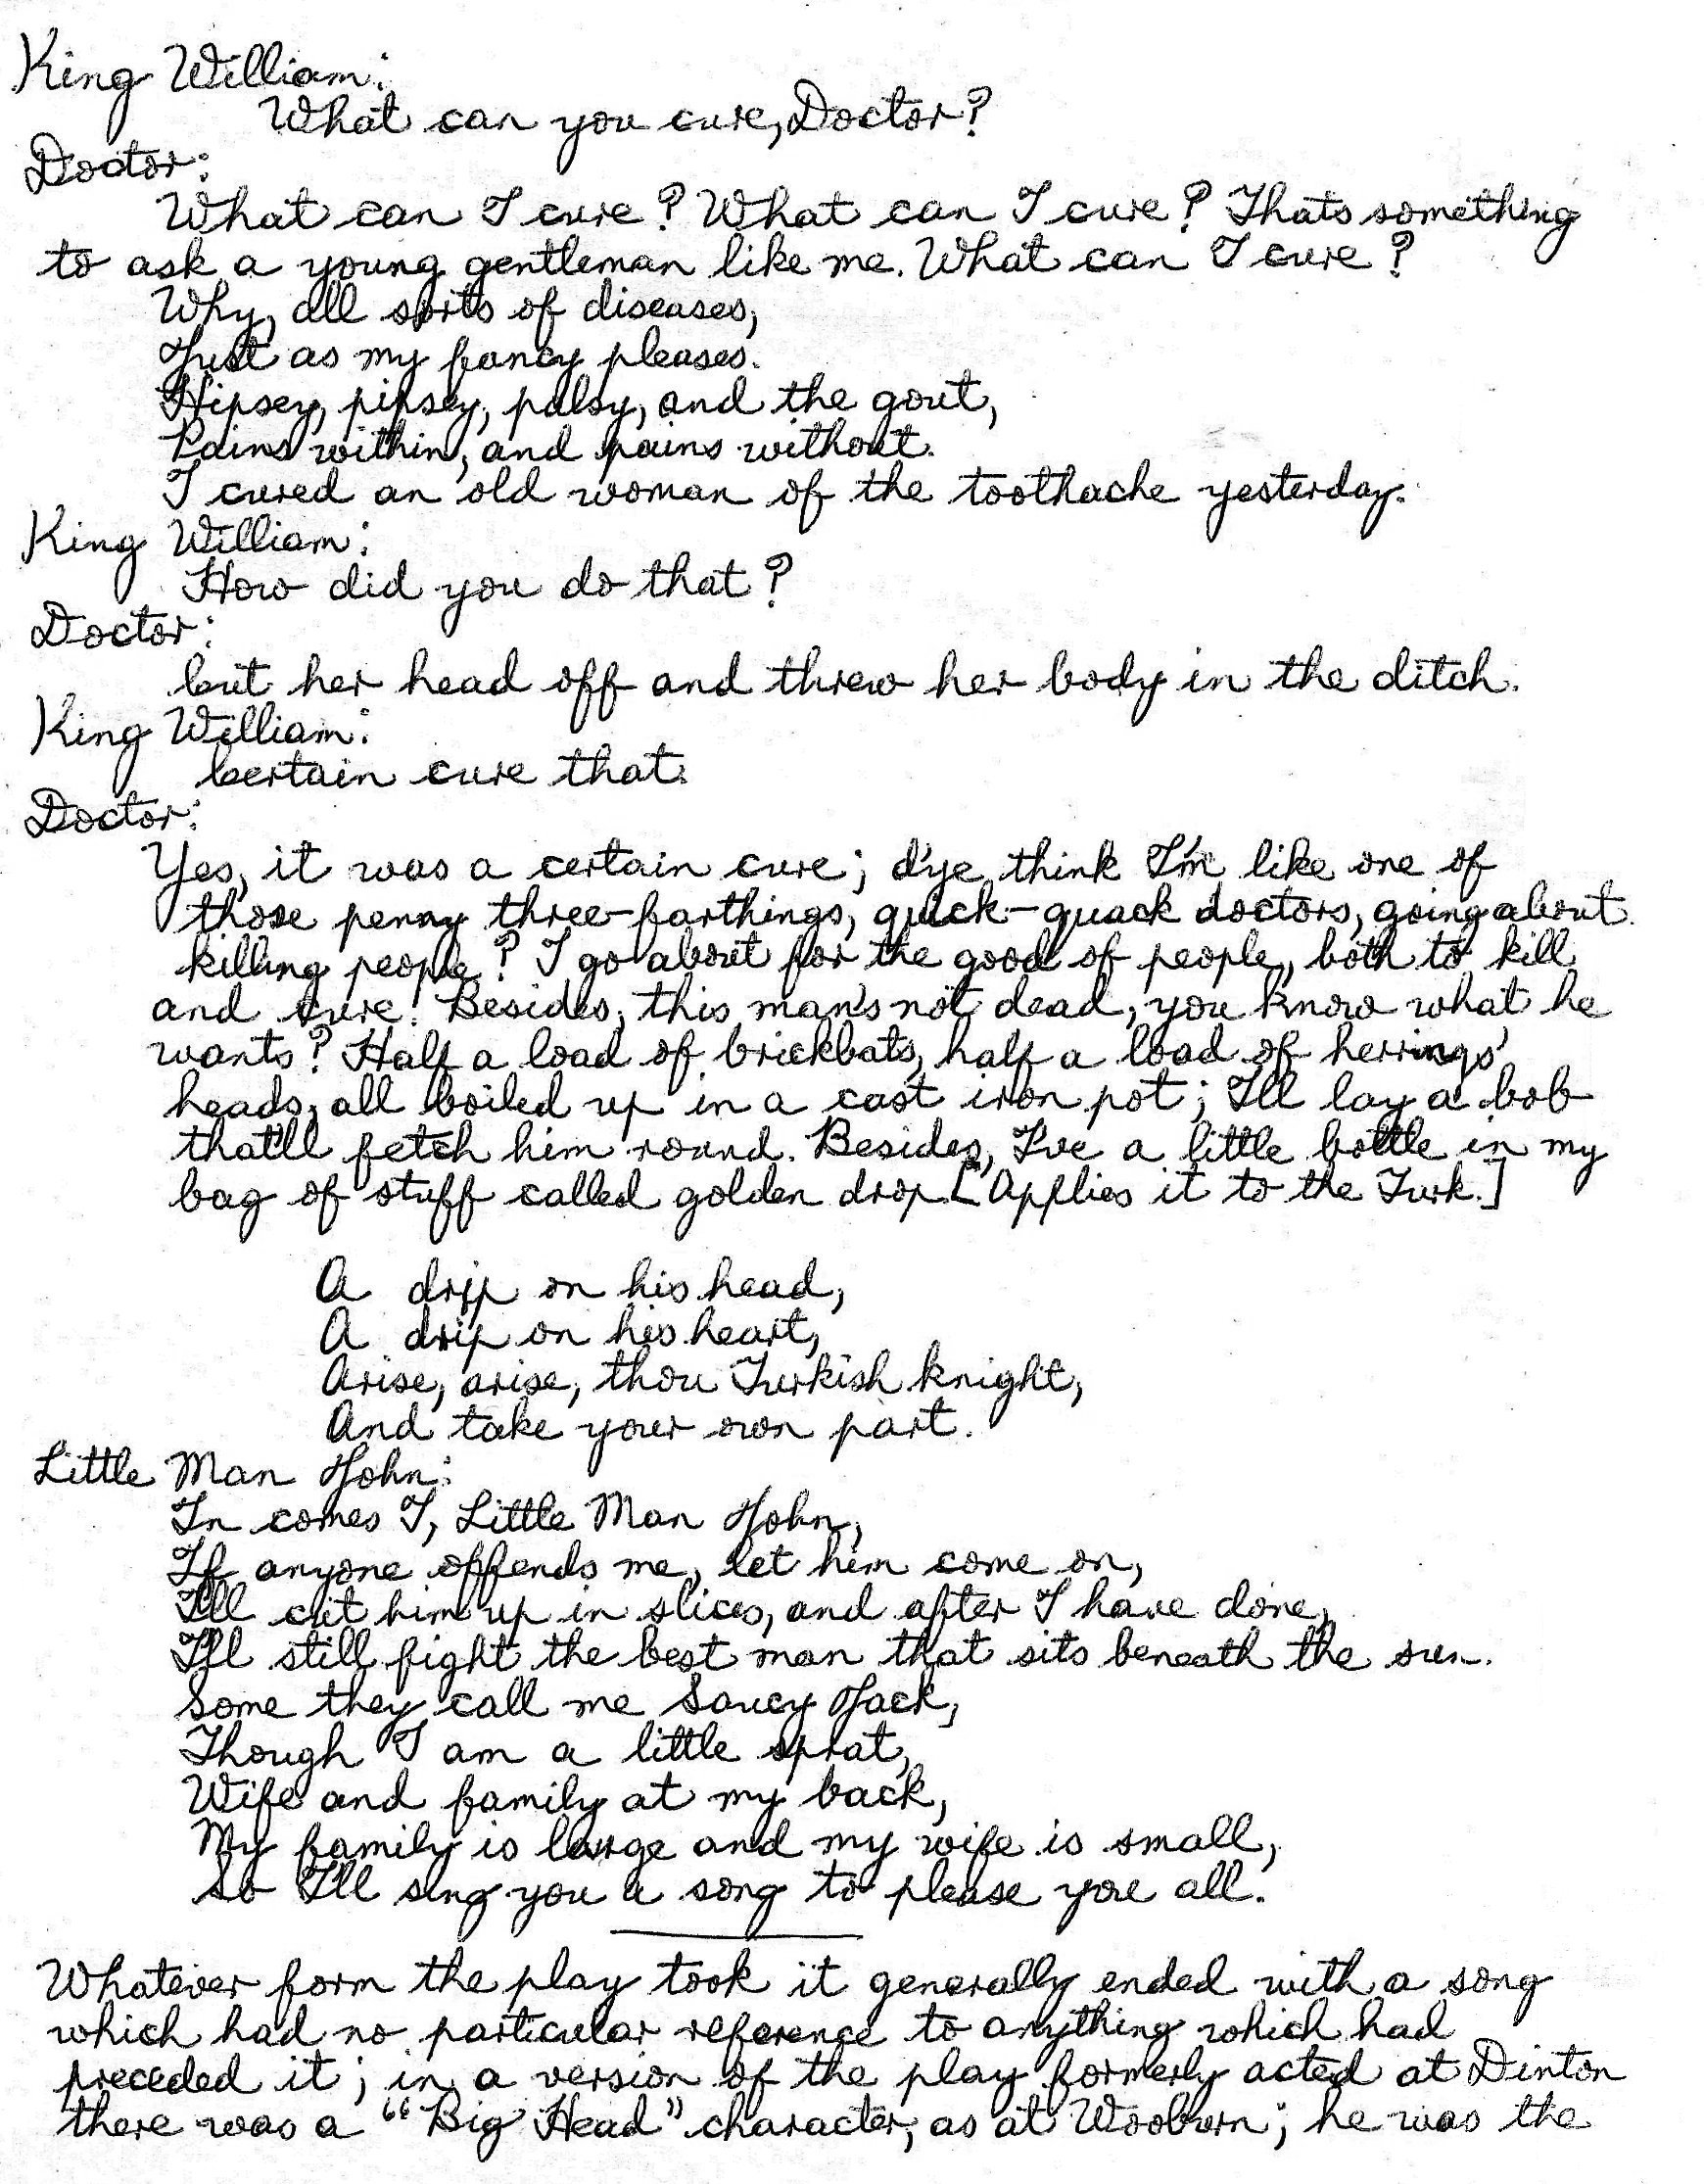 King William:
What can you cure, Doctor?
Doctor:
What can I cure? What can I cure? Thats something
to ask a young gentleman like me. What can I cure?
Why, all sorts of diseases,
Just as my fancy pleases.
Hipsey, pipsey, palsy, and the gout,
Pains within, and pains without.
I cured an old woman of the toothache yesterday.
King William:
How did you do that?
Doctor:
Cut her head off and threw her body in the ditch.
King William:
Certain cure that.
Doctor:
Yes, it was a certain cure; d'ye think I'm like one of
those penny three-farthings, quick-quack doctors, going about
killing people? I go about for the good of people, both to kill
and cure. Besides, this man's not dead, you know what he
wants? Half a load of brickbats, half a load of herrings'
heads, all boiled up in a cast iron pot; I'll lay a bob
that'll fetch him round. Besides, I've a little bottle in my
bag of stuff called golden drop. [Applies it to the Turk.]
A drip on his head,
A drip on his heart,
Arise, arise, thou Turkish knight,
And take your own part.
Little Man John:
In comes I, Little Man John,
If anyone offends me, let him come on,
I'll cut him up in slices, and after I have done,
I'll still fight the best man that sits beneath the sun.
Some they call me Saucy Jack,
Though I am a little sprat,
Wife and family at my back,
My family is large and my wife is small,
So I'll sing you a song to please you all.
Whatever form the play took it generally ended with a song
which had no particular reference to anything which had
preceded it; in a version of the play formerly acted at Dinton
there was a "Big Head" character, as at Wooburn; he was the